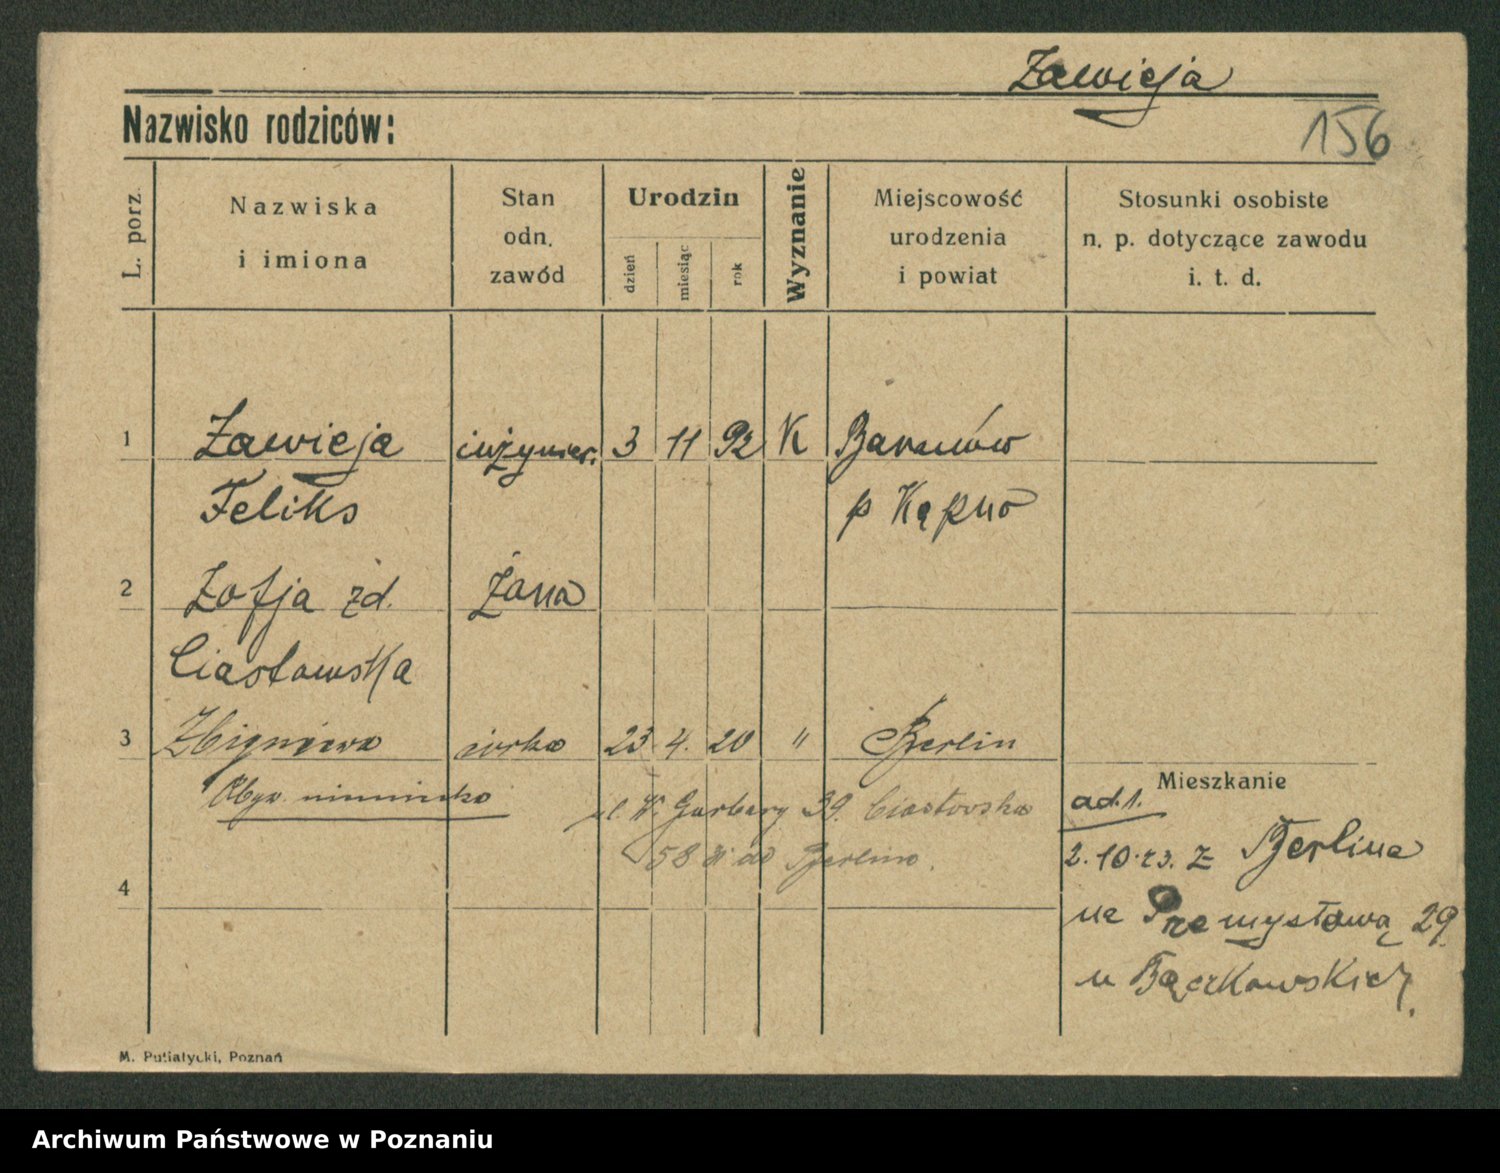 Zawieja
Nazwisko rodziców:
156
L. porz.
Nazwiska
i imiona
Stan
odn.
zawód
Urodzin
dzień
miesiąc
rok
Wyznanie
Miejscowość
urodzenia
i powiat
Stosunki osobiste
n. p. dotyczące zawodu
i. t. d.
1 Zawieja inżynier. 3 11 92 K Baranów
Feliks p Kępno
2 Zofja zd. Żona
Ciastowska
3 Zbigniewa córka 23 4. 20 " Berlin
Mieszkanie
Obyw. niemiecka
ul. W. Garbary 39. Ciastowska
58 do Berlina.
4
ad. 1.
2.10.23. z Berlina
na Przemysłową 29.
u Bączkowskiej.
M. Putiatycki, Poznań
Archiwum Państwowe w Poznaniu